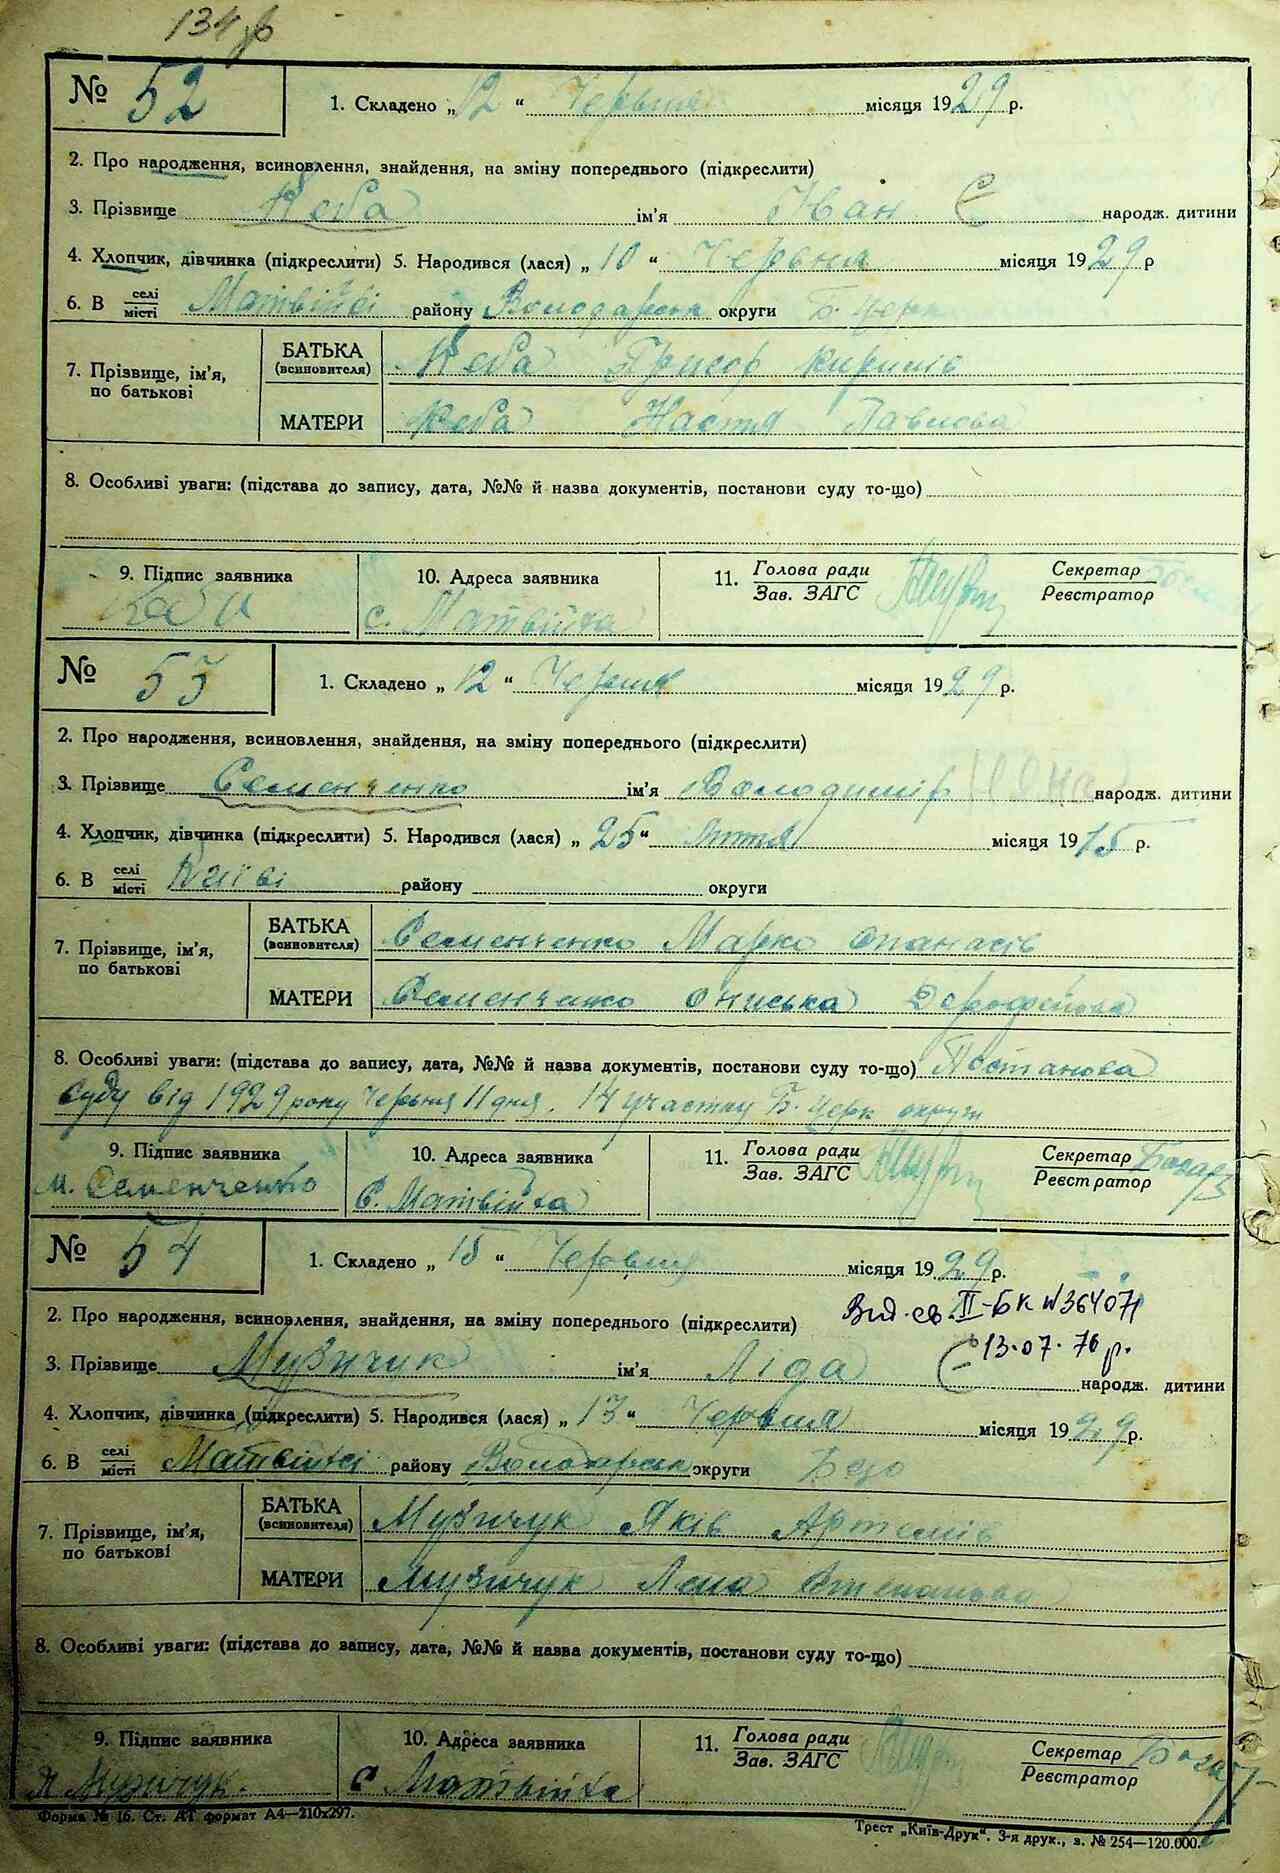 134зв
№ 52
1. Складено „ 12 “ Червня місяця 1929 р.
2. Про народження, всиновлення, знайдення, на зміну попереднього (підкреслити)
3. Прізвище Кеба ім'я Іван народж. дитини
4. Хлопчик, дівчинка (підкреслити) 5. Народився (лася) „ 10 “ Червня місяця 1929 р
6. В селі/місті Матвійкі району Володарськ округи Б. Церк
7. Прізвище, ім'я, по батькові
БАТЬКА (всиновителя) Кеба Григор Кирилів
МАТЕРИ Кеба Настя Павлова
8. Особливі уваги: (підстава до запису, дата, №№ й назва документів, постанови суду то-що)
9. Підпис заявника 10. Адреса заявника 11. Голова ради/Зав. ЗАГС Секретар/Реєстратор
Кеба с. Матвійха
№ 53
1. Складено „ 12 “ Червня місяця 1929 р.
2. Про народження, всиновлення, знайдення, на зміну попереднього (підкреслити)
3. Прізвище Семенченко ім'я Володимір народж. дитини
4. Хлопчик, дівчинка (підкреслити) 5. Народився (лася) „ 25 “ місяця 1915 р.
6. В селі/місті Київі району округи
7. Прізвище, ім'я, по батькові
БАТЬКА (всиновителя) Семенченко Марко Опанасів
МАТЕРИ Семенченко Ониська Дорофейова
8. Особливі уваги: (підстава до запису, дата, №№ й назва документів, постанови суду то-що) Постанова
суду від 1929 року Червня 11 дня. 14 участку Б. Церк округи
9. Підпис заявника 10. Адреса заявника 11. Голова ради/Зав. ЗАГС Секретар/Реєстратор
М. Семенченко С. Матвійха
№ 54
1. Складено „ 15 “ Червня місяця 1929 р.
2. Про народження, всиновлення, знайдення, на зміну попереднього (підкреслити)
Вид. св. II-БК N 364071
13.07.76 р.
3. Прізвище Музичук ім'я Ліда народж. дитини
4. Хлопчик, дівчинка (підкреслити) 5. Народився (лася) „ 13 “ Червня місяця 1929 р.
6. В селі/місті Матвійкі району Володарськ округи
7. Прізвище, ім'я, по батькові
БАТЬКА (всиновителя) Музичук Яків Артемів
МАТЕРИ Музичук Лена Степанова
8. Особливі уваги: (підстава до запису, дата, №№ й назва документів, постанови суду то-що)
9. Підпис заявника 10. Адреса заявника 11. Голова ради/Зав. ЗАГС Секретар/Реєстратор
Музичук. С Матвійха
Форма № 16. Ст. АТ формат А4—210х297.
Трест „Київ-Друк“. 3-я друк., з. № 254—120.000.